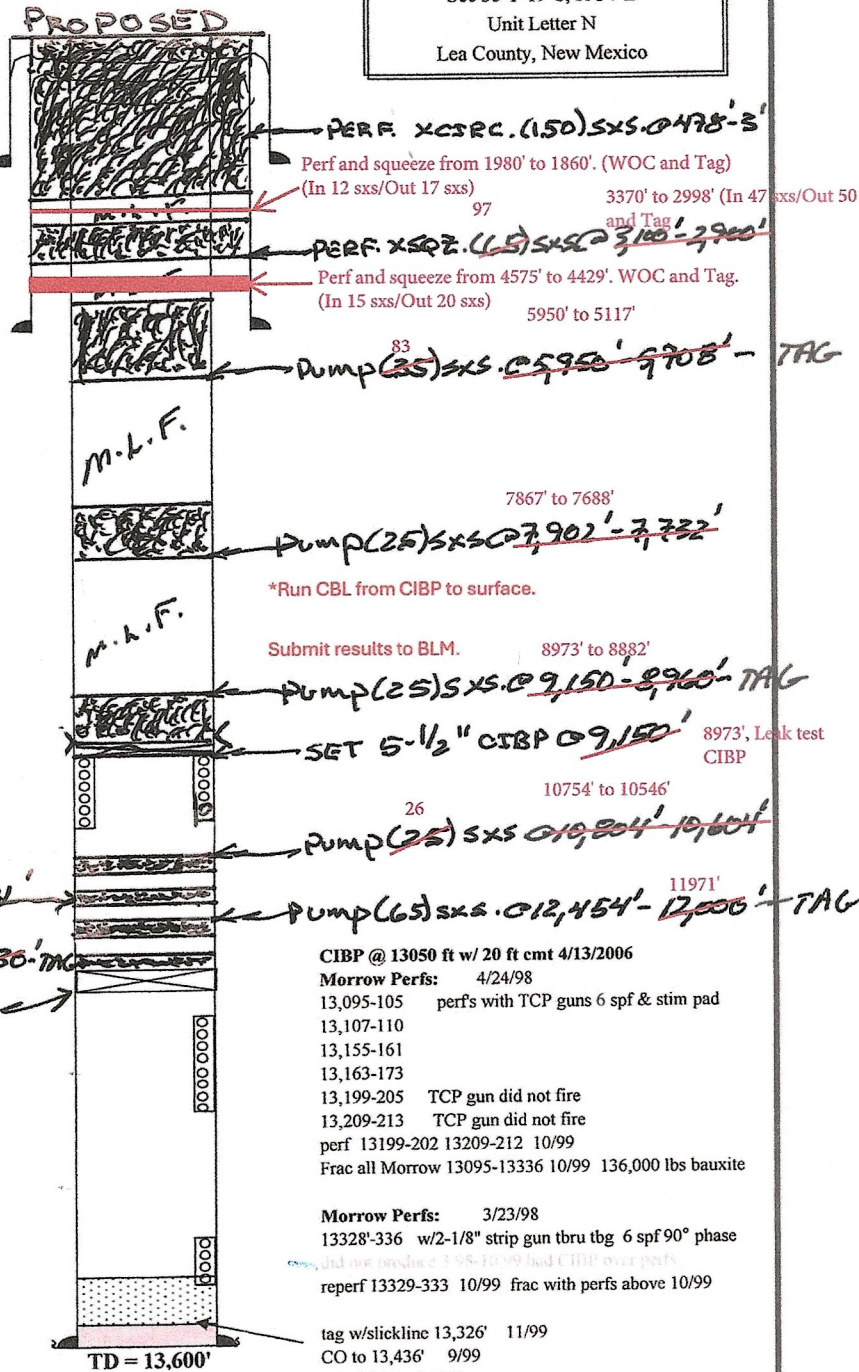 Unit Letter N
Lea County, New Mexico
PROPOSED
PERF. XCIRC. (150) SXS. @ 478'-3'
Perf and squeeze from 1980' to 1860'. (WOC and Tag)
(In 12 sxs/Out 17 sxs)
97
3370' to 2998' (In 47 sxs/Out 50
and Tag
M.L.F.
PERF. XSQZ. (65) SXS @ 3,100'-2,900'
Perf and squeeze from 4575' to 4429'. WOC and Tag.
(In 15 sxs/Out 20 sxs)
5950' to 5117'
83
Pump (35) SXS. @ 5,950'-5,708' - TAG
M.L.F.
7867' to 7688'
Pump (25) SXS @ 7,902'-7,732'
*Run CBL from CIBP to surface.
M.L.F.
Submit results to BLM.
8973' to 8882'
Pump (25) SXS. @ 9,150'-8,960' - TAG
SET 5-1/2" CIBP @ 9,150'
8973', Leak test
CIBP
10754' to 10546'
26
Pump (25) SXS @ 10,804'-10,604'
11971'
Pump (65) SXS. @ 12,454'-12,000' - TAG
30'-TAG
CIBP @ 13050 ft w/ 20 ft cmt 4/13/2006
Morrow Perfs: 4/24/98
13,095-105 perf's with TCP guns 6 spf & stim pad
13,107-110
13,155-161
13,163-173
13,199-205 TCP gun did not fire
13,209-213 TCP gun did not fire
perf 13199-202 13209-212 10/99
Frac all Morrow 13095-13336 10/99 136,000 lbs bauxite
Morrow Perfs: 3/23/98
13328'-336 w/2-1/8" strip gun tbru tbg 6 spf 90° phase
did not produce 3/98-10/99 had CIBP over perfs
reperf 13329-333 10/99 frac with perfs above 10/99
tag w/slickline 13,326' 11/99
CO to 13,436' 9/99
TD = 13,600'